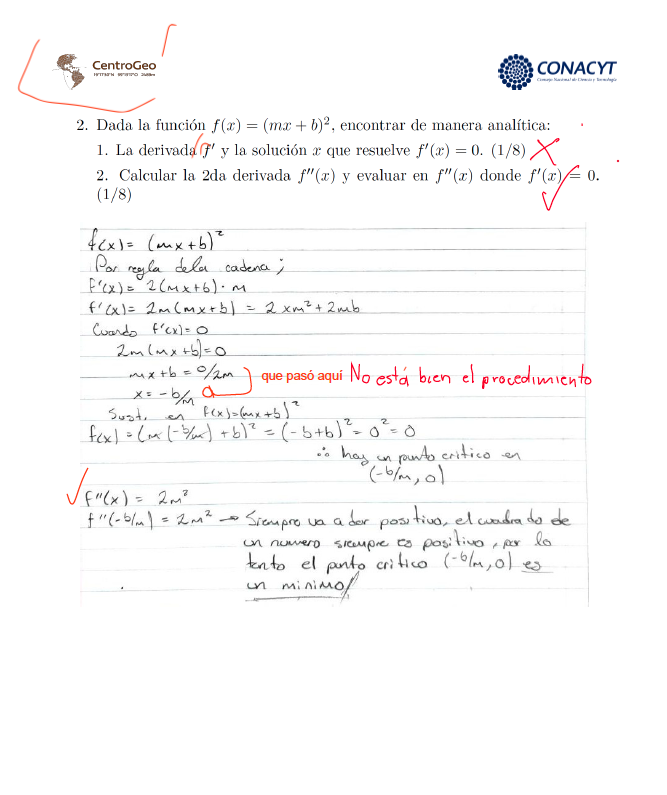 CentroGeo
CONACYT
Consejo Nacional de Ciencia y Tecnología
2. Dada la función f(x) = (mx + b)², encontrar de manera analítica:
1. La derivada f′ y la solución x que resuelve f′(x) = 0. (1/8)
2. Calcular la 2da derivada f′′(x) y evaluar en f′′(x) donde f′(x) = 0.
(1/8)
f(x) = (mx+b)²
Por regla de la cadena;
f'(x) = 2(mx+b)·m
f'(x) = 2m(mx+b) = 2xm²+2mb
Cuando f'(x)=0
2m(mx+b)=0
mx+b = 0/2m
que pasó aquí No está bien el procedimiento
x = -b/m
Sust. en f(x)=(mx+b)²
f(x) = (m(-b/m)+b)² = (-b+b)² = 0² = 0
∴ hay un punto critico en
(-b/m, 0)
f''(x) = 2m²
f''(-b/m) = 2m² → Siempre va a dar positivo, el cuadrado de
un numero siempre es positivo, por lo
tanto el punto critico (-b/m, 0) es
un minimo/